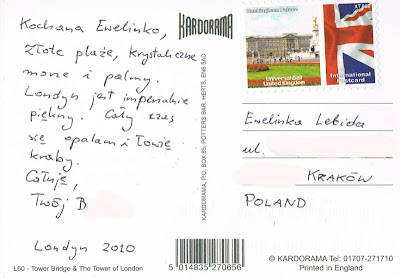 Kochana Ewelinko,
Złote plaże, krystaliczne
morze i palmy.
Londyn jest imperialnie
piękny. Cały czas
się opalam i łowię
kraby.
Całuję,
Twój B
Londyn 2010
L60 - Tower Bridge & The Tower of London
KARDORAMA
KARDORAMA, P.O. BOX 85, POTTERS BAR, HERTS, EN6 5AD
5 014835 270656
Buckingham Palace
Universal Mail
United Kingdom
International
Postcard
Ewelinka Lebida
ul.
KRAKÓW
POLAND
© KARDORAMA Tel: 01707-271710
Printed in England